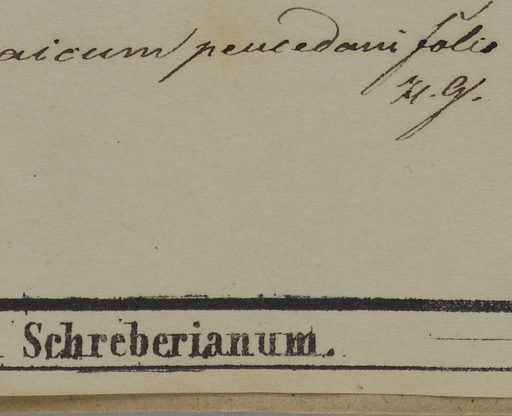 aicum peucedani folio
H. G.
Schreberianum.